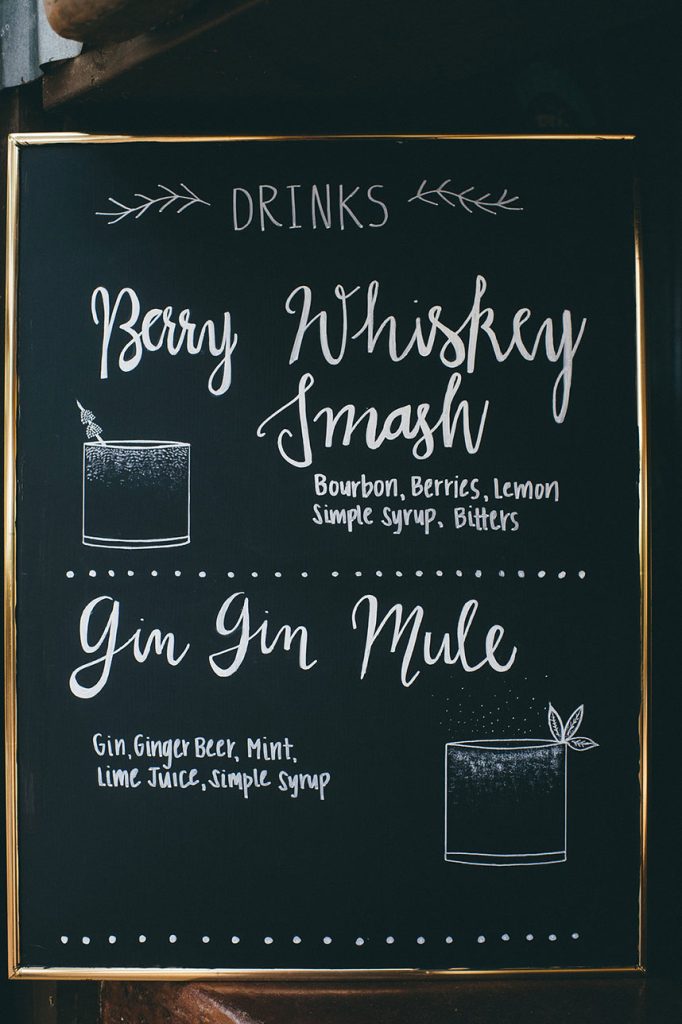 DRINKS
Berry Whiskey
Smash
Bourbon, Berries, Lemon
Simple Syrup, Bitters
Gin Gin Mule
Gin, Ginger Beer, Mint,
Lime Juice, Simple Syrup